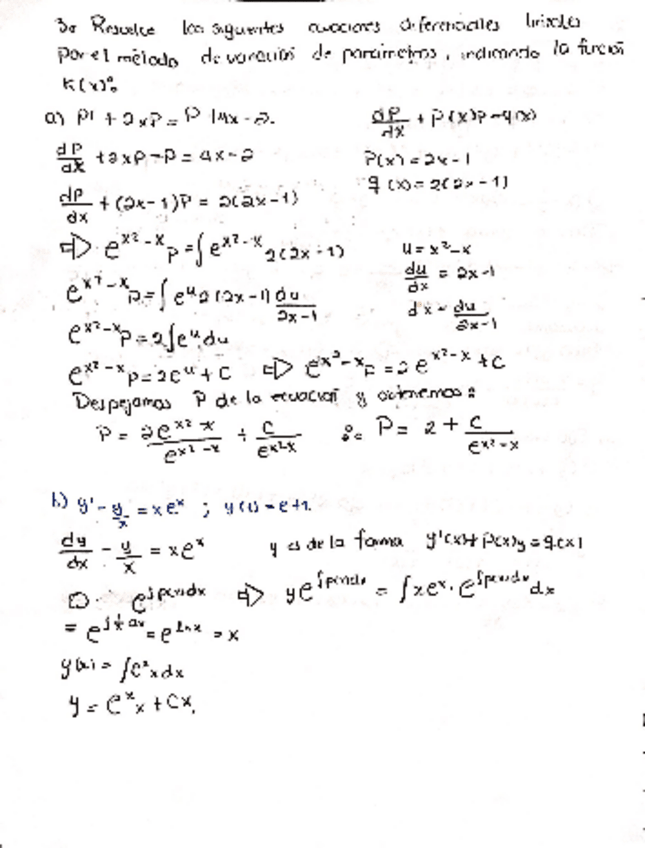 3. Resuelve las siguientes ecuaciones diferenciales lineales
por el método de variación de parámetros, indicando la función
K(x):
a) P' + 2xP = P + 4x - 2.
dP/dx + P(x)P = q(x)
dP/dx + 2xP - P = 4x - 2
P(x) = 2x - 1
q(x) = 2(2x - 1)
dP/dx + (2x - 1)P = 2(2x - 1)
⇒ e^{x²-x} P = ∫ e^{x²-x} 2(2x - 1)
u = x² - x
du/dx = 2x - 1
dx = du/2x-1
e^{x²-x} P = ∫ e^u 2(2x - 1) du/2x-1
e^{x²-x} P = 2∫e^u du
e^{x²-x} P = 2e^u + C ⇒ e^{x²-x} P = 2e^{x²-x} + C
Despejamos P de la ecuación y obtenemos:
P = 2e^{x²-x}/e^{x²-x} + C/e^{x²-x} ∴ P = 2 + C/e^{x²-x}
b) y' - y/x = xe^x ; y(1) = e + 1.
dy/dx - y/x = xe^x y es de la forma y'(x) + P(x)y = q(x)
e^{∫p(x)dx} ⇒ ye^{∫p(x)dx} = ∫xe^x · e^{∫p(x)dx} dx
= e^{∫1/x dx} = e^{ln x} = x
y(x) = ∫e^x x dx
y = e^x x + Cx.